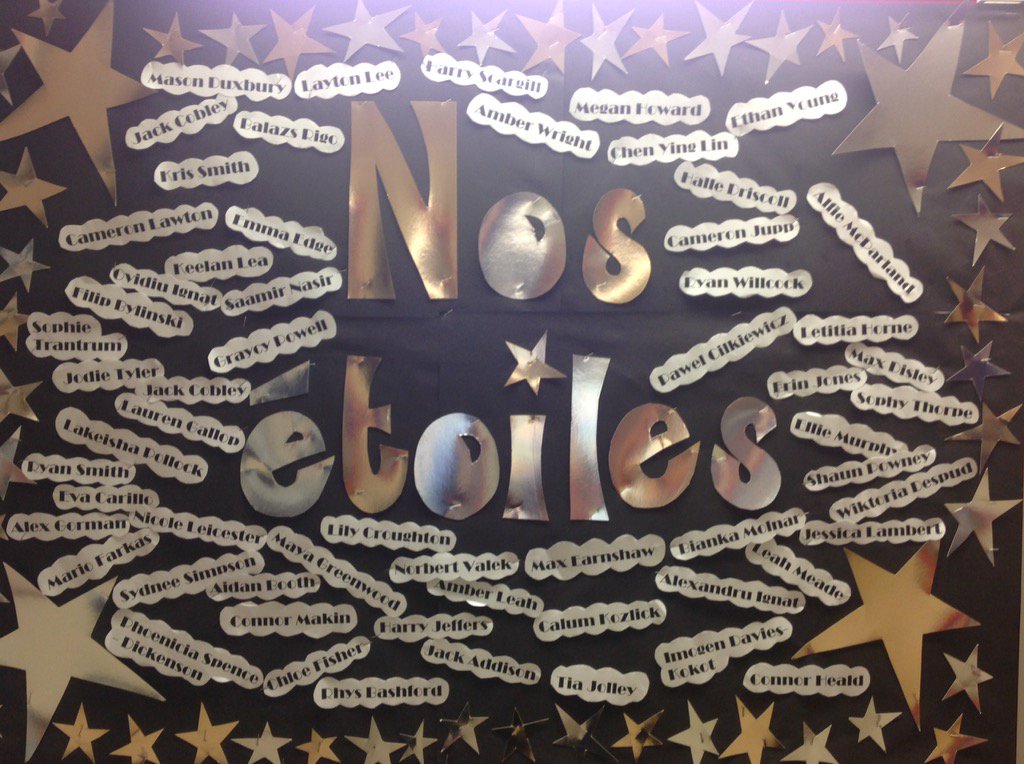 Mason Duxbury
Layton Lee
Harry Scargill
Megan Howard
Ethan Young
Jack Cobley
Balazs Rigo
Amber Wright
Chen Ying Lin
Kris Smith
Halle Driscoll
Alfie McParland
Cameron Lawton
Emma Edge
Cameron Jupp
Keelan Lea
Ovidiu Ignat
Saamir Nasir
Ryan Willcock
Filip Bylinski
Nos
Sophie
Trantrum
Graycy Powell
Pawel Cilkiewicz
Letitia Horne
Max Disley
Jodie Tyler
Jack Cobley
Brin Jones
Sophy Thorpe
Lauren Gallop
Lakeisha Pollock
étoiles
Ellie Murphy
Shaun Powney
Ryan Smith
Wiktoria Despud
Eva Carillo
Alex Gorman
Nicole Leicester
Lily Croughton
Bianka Molnar
Jessica Lambert
Mario Farkas
Maya Greenwood
Norbert Valek
Max Earnshaw
Leah Meade
Sydnee Simpson
Aidan Booth
Amber Leah
Alexandru Ignat
Connor Makin
Harry Jeffers
Calum Kozlick
Phoenicia Spence
- Dickenson
Chloe Fisher
Jack Addison
Imogen Davies-
Kokot
Rhys Bashford
Tia Jolley
Connor Heald